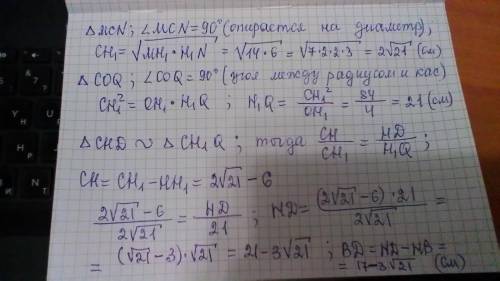 △MCN; ∠MCN=90° (опирается на диаметр);
CH₁=√MH₁·H₁N = √14·6 = √7·2·2·3 = 2√21 (см)
△COQ; ∠COQ=90° (угол между радиусом и кас)
CH₁²=OH₁·H₁Q ; H₁Q = CH₁²/OH₁ = 84/4 = 21 (см)
△CHD ∾ △CH₁Q ; тогда CH/CH₁ = HD/H₁Q ;
CH=CH₁-HH₁=2√21-6
(2√21-6)/(2√21) = HD/21 ; HD=((2√21-6)·21)/(2√21) =
= (√21-3)·√21 = 21-3√21 ; BD=HD-HB=
= 17-3√21 (см)